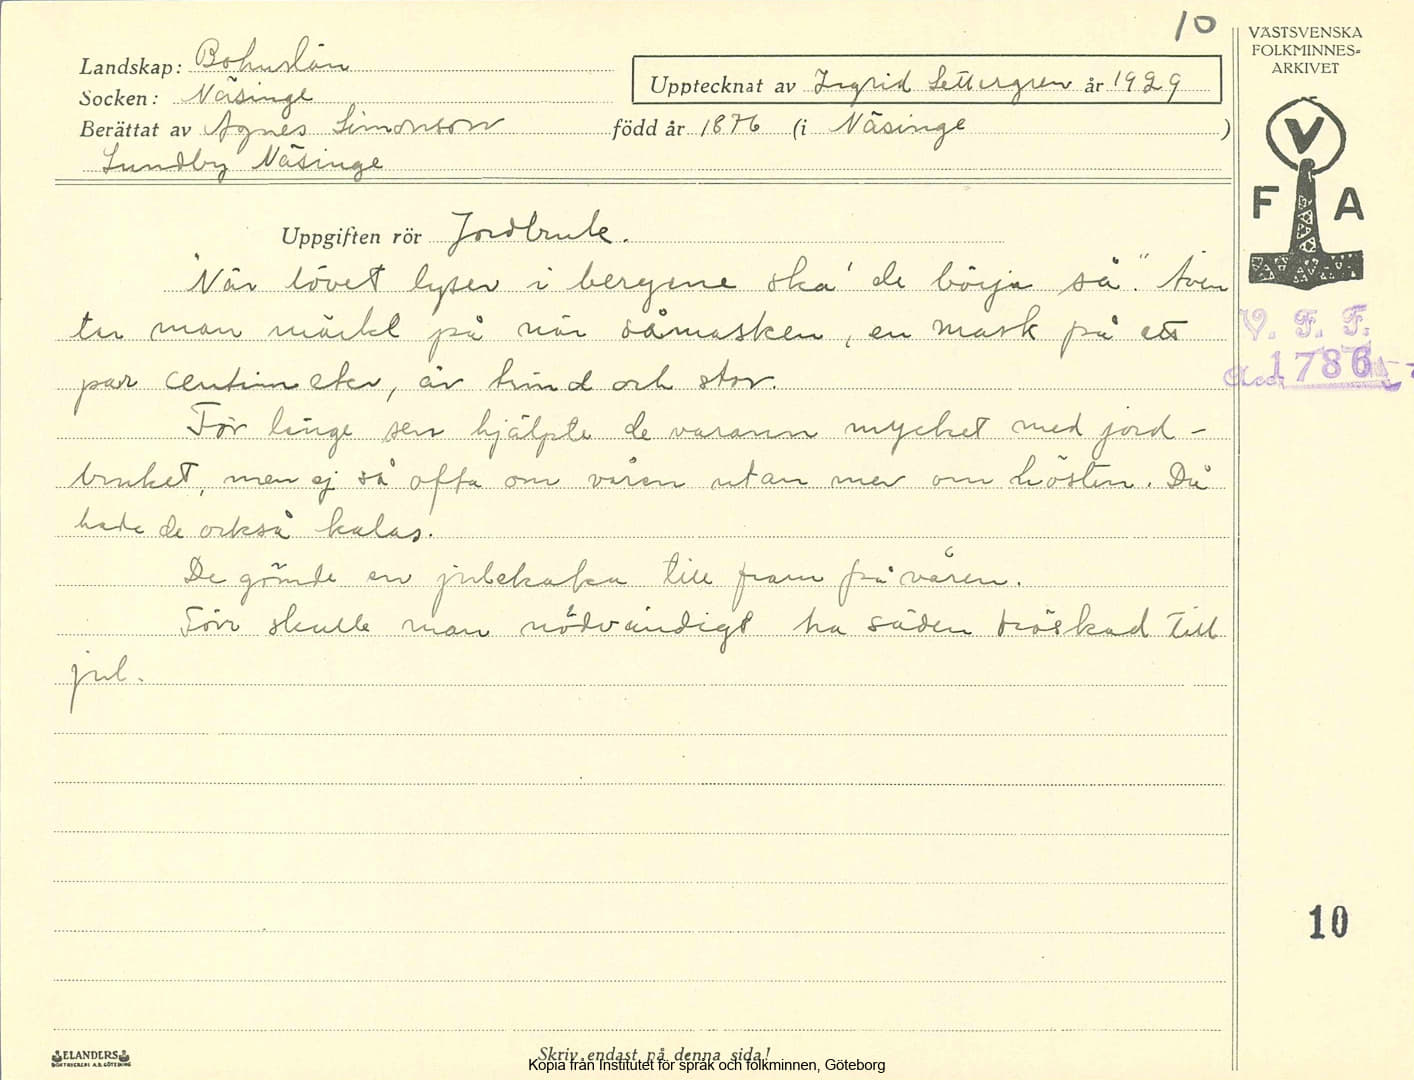 10
Landskap: Bohuslän
Socken: Näsinge
Upptecknat av Ingrid Settergren år 1929
Berättat av Agnes Simonson född år 1876 (i Näsinge )
Lundby Näsinge
VÄSTSVENSKA
FOLKMINNES=
ARKIVET
V
F A
V. F. F.
Acc. 1786
Uppgiften rör Jordbruk.
"När lövet lyser i bergene ska' de börja så". Även
tar man märke på när såmasken, en mask på ett
par centimeter, är trind och stor.
För länge sen hjälpte de varann mycket med jord-
bruket, men ej så ofta om våren utan mer om hösten. Då
hade de också kalas.
De gömde en julekaka till fram på våren.
Förr skulle man nödvändigt ha säden tröskad till
jul.
10
ELANDERS
BOKTRYCKERI A.B. GÖTEBORG
Skriv endast på denna sida!
Kopia från Institutet för språk och folkminnen, Göteborg